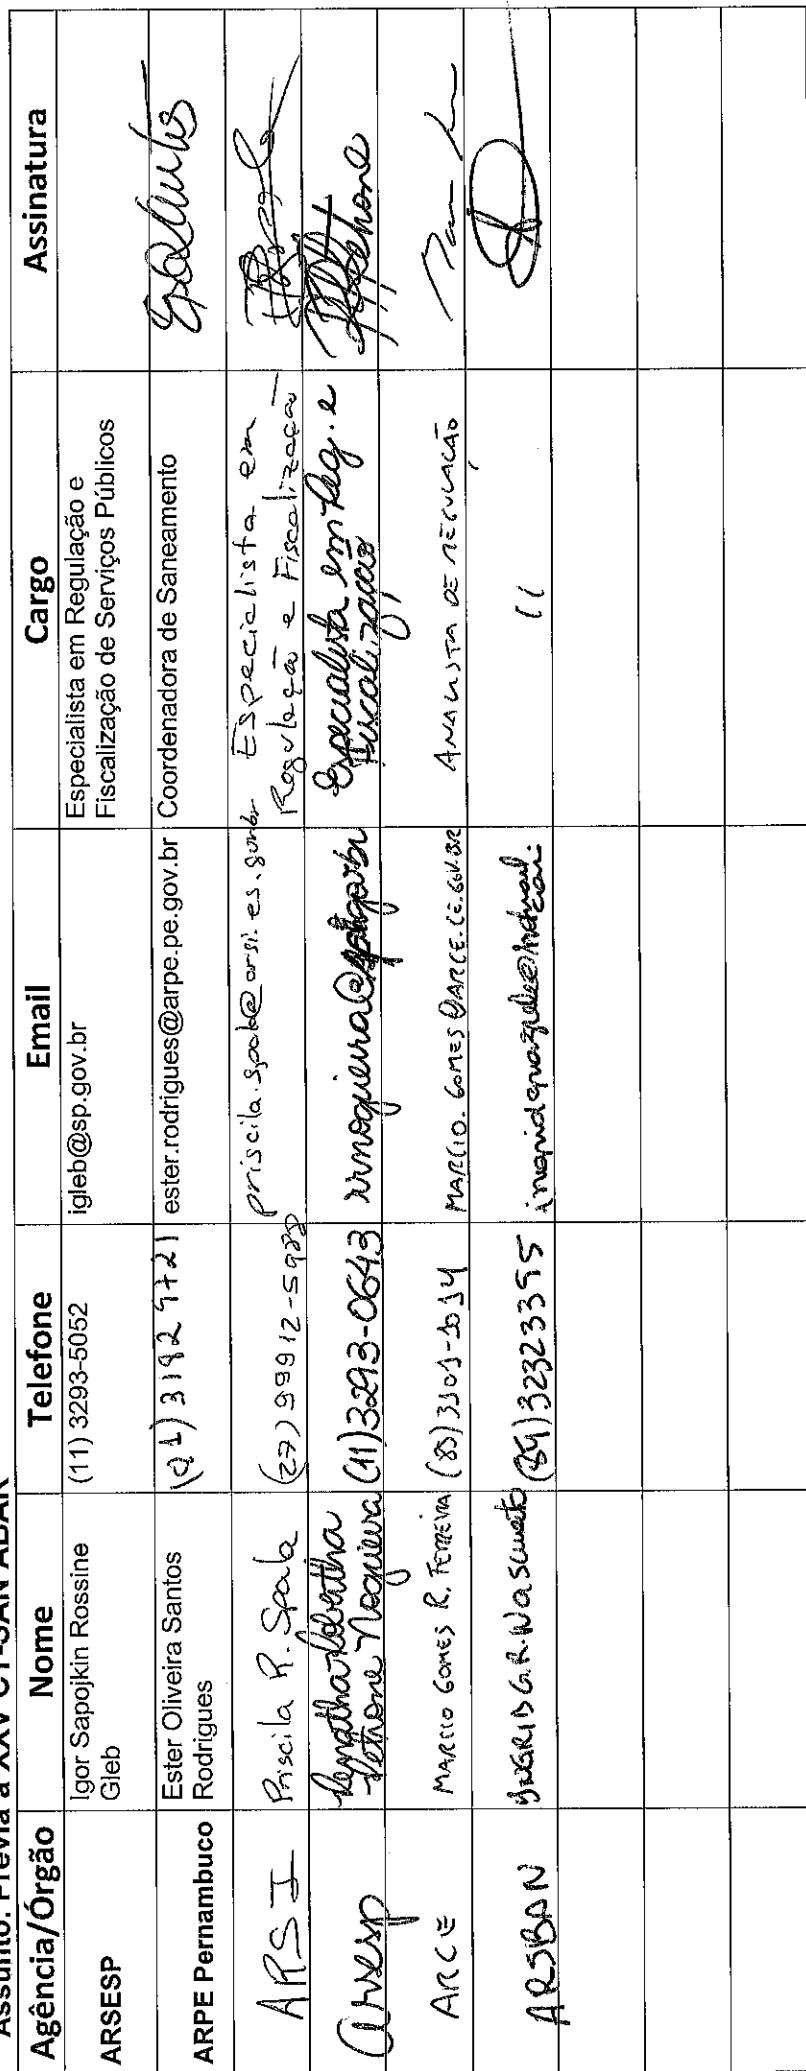 Assunto: Prévia à XXV CT-SAN ABAR
Agência/Órgão Nome Telefone Email Cargo Assinatura
ARSESP Igor Sapojkin Rossine Gleb (11) 3293-5052 igleb@sp.gov.br Especialista em Regulação e Fiscalização de Serviços Públicos
ARPE Pernambuco Ester Oliveira Santos Rodrigues ester.rodrigues@arpe.pe.gov.br Coordenadora de Saneamento
ARSI Priscila R. Spala (27) 99912-5980 priscila.spala@arsi.es.gov.br Especialista em Regulação e Fiscalização
Arsesp Renatha Robertha Petrone Nogueira (11) 3293-0643 Especialista em Reg. e Fiscalização
ARCE MARCIO GOMES R. FERREIRA (85) 3101-1014 MARCIO.GOMES@ARCE.CE.GOV.BR ANALISTA DE REGULAÇÃO
ARSBAN INGRID G.R. Nascimento (84) 32323395 "